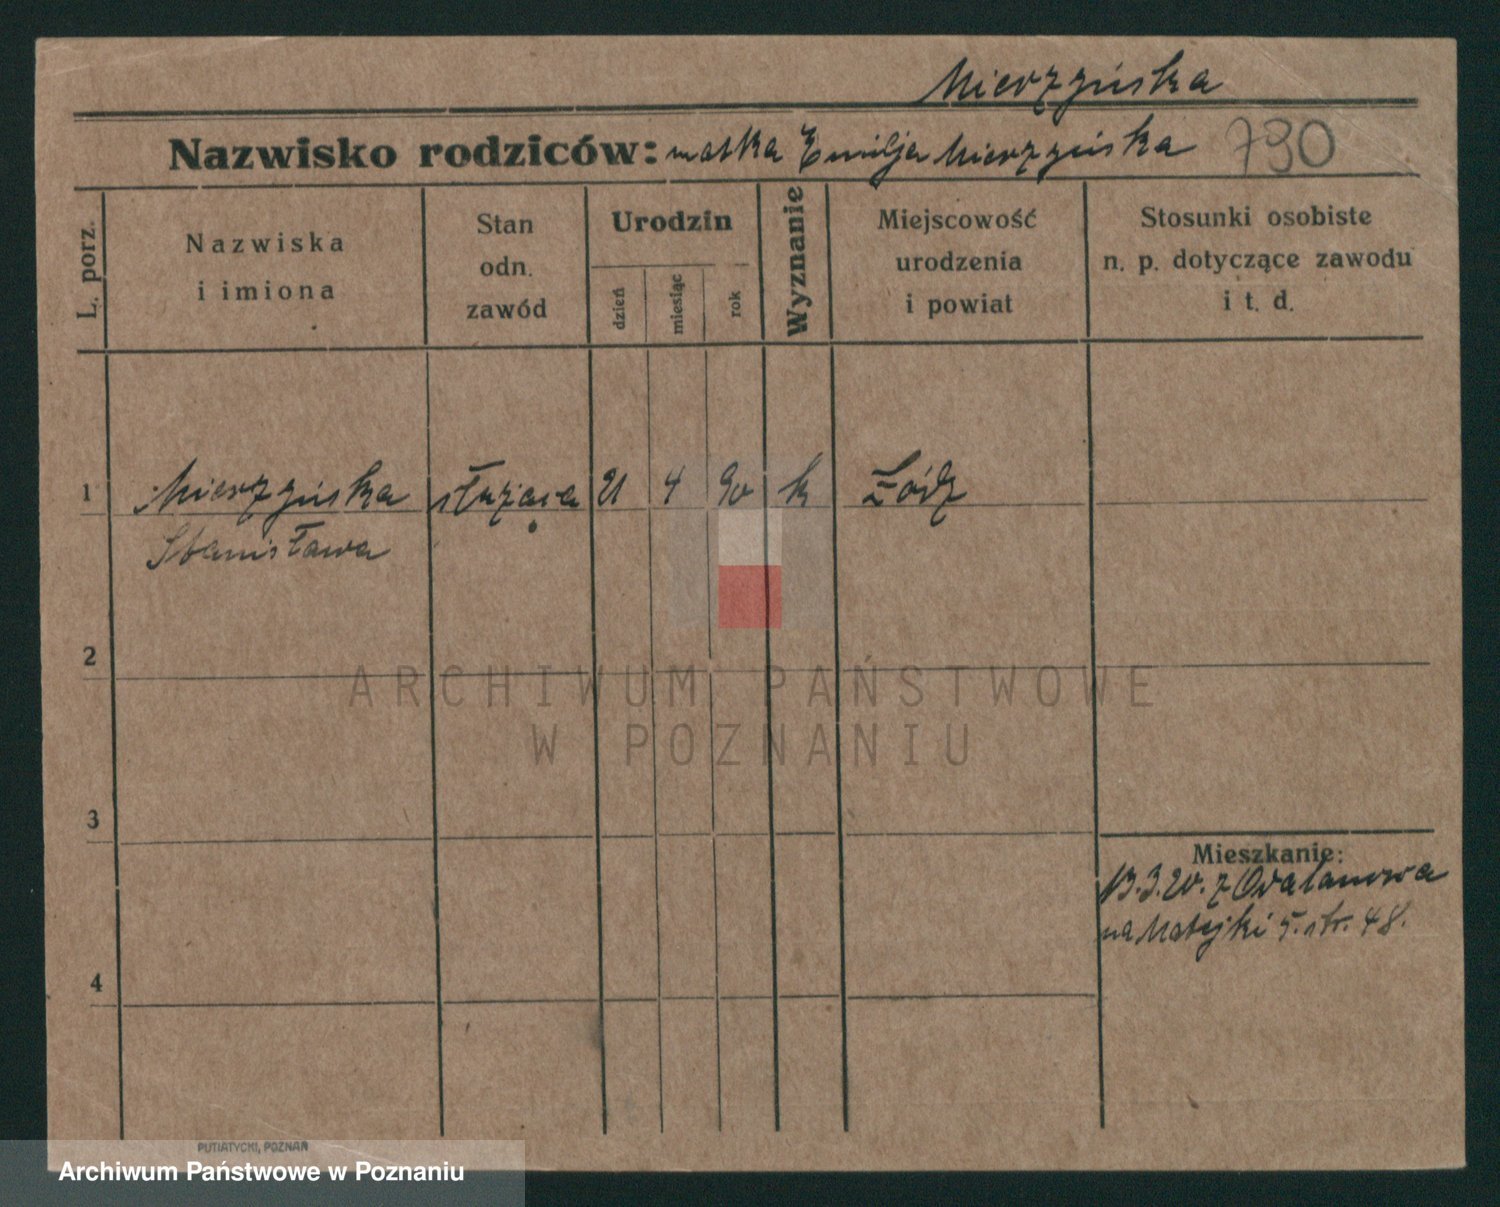 Mierzyńska
Nazwisko rodziców: matka Emilja Mierzyńska 790
L. porz.
Nazwiska
i imiona
Stan
odn.
zawód
Urodzin
dzień
miesiąc
rok
Wyznanie
Miejscowość
urodzenia
i powiat
Stosunki osobiste
n. p. dotyczące zawodu
i t. d.
1 Mierzyńska służąca 21 4 90 k Łódz
Stanisława
2
ARCHIWUM PAŃSTWOWE
W POZNANIU
3
Mieszkanie:
13.3.20. z Odalanowa
na Matejki 5. str. 48.
4
PUTIATYCKI, POZNAŃ
Archiwum Państwowe w Poznaniu